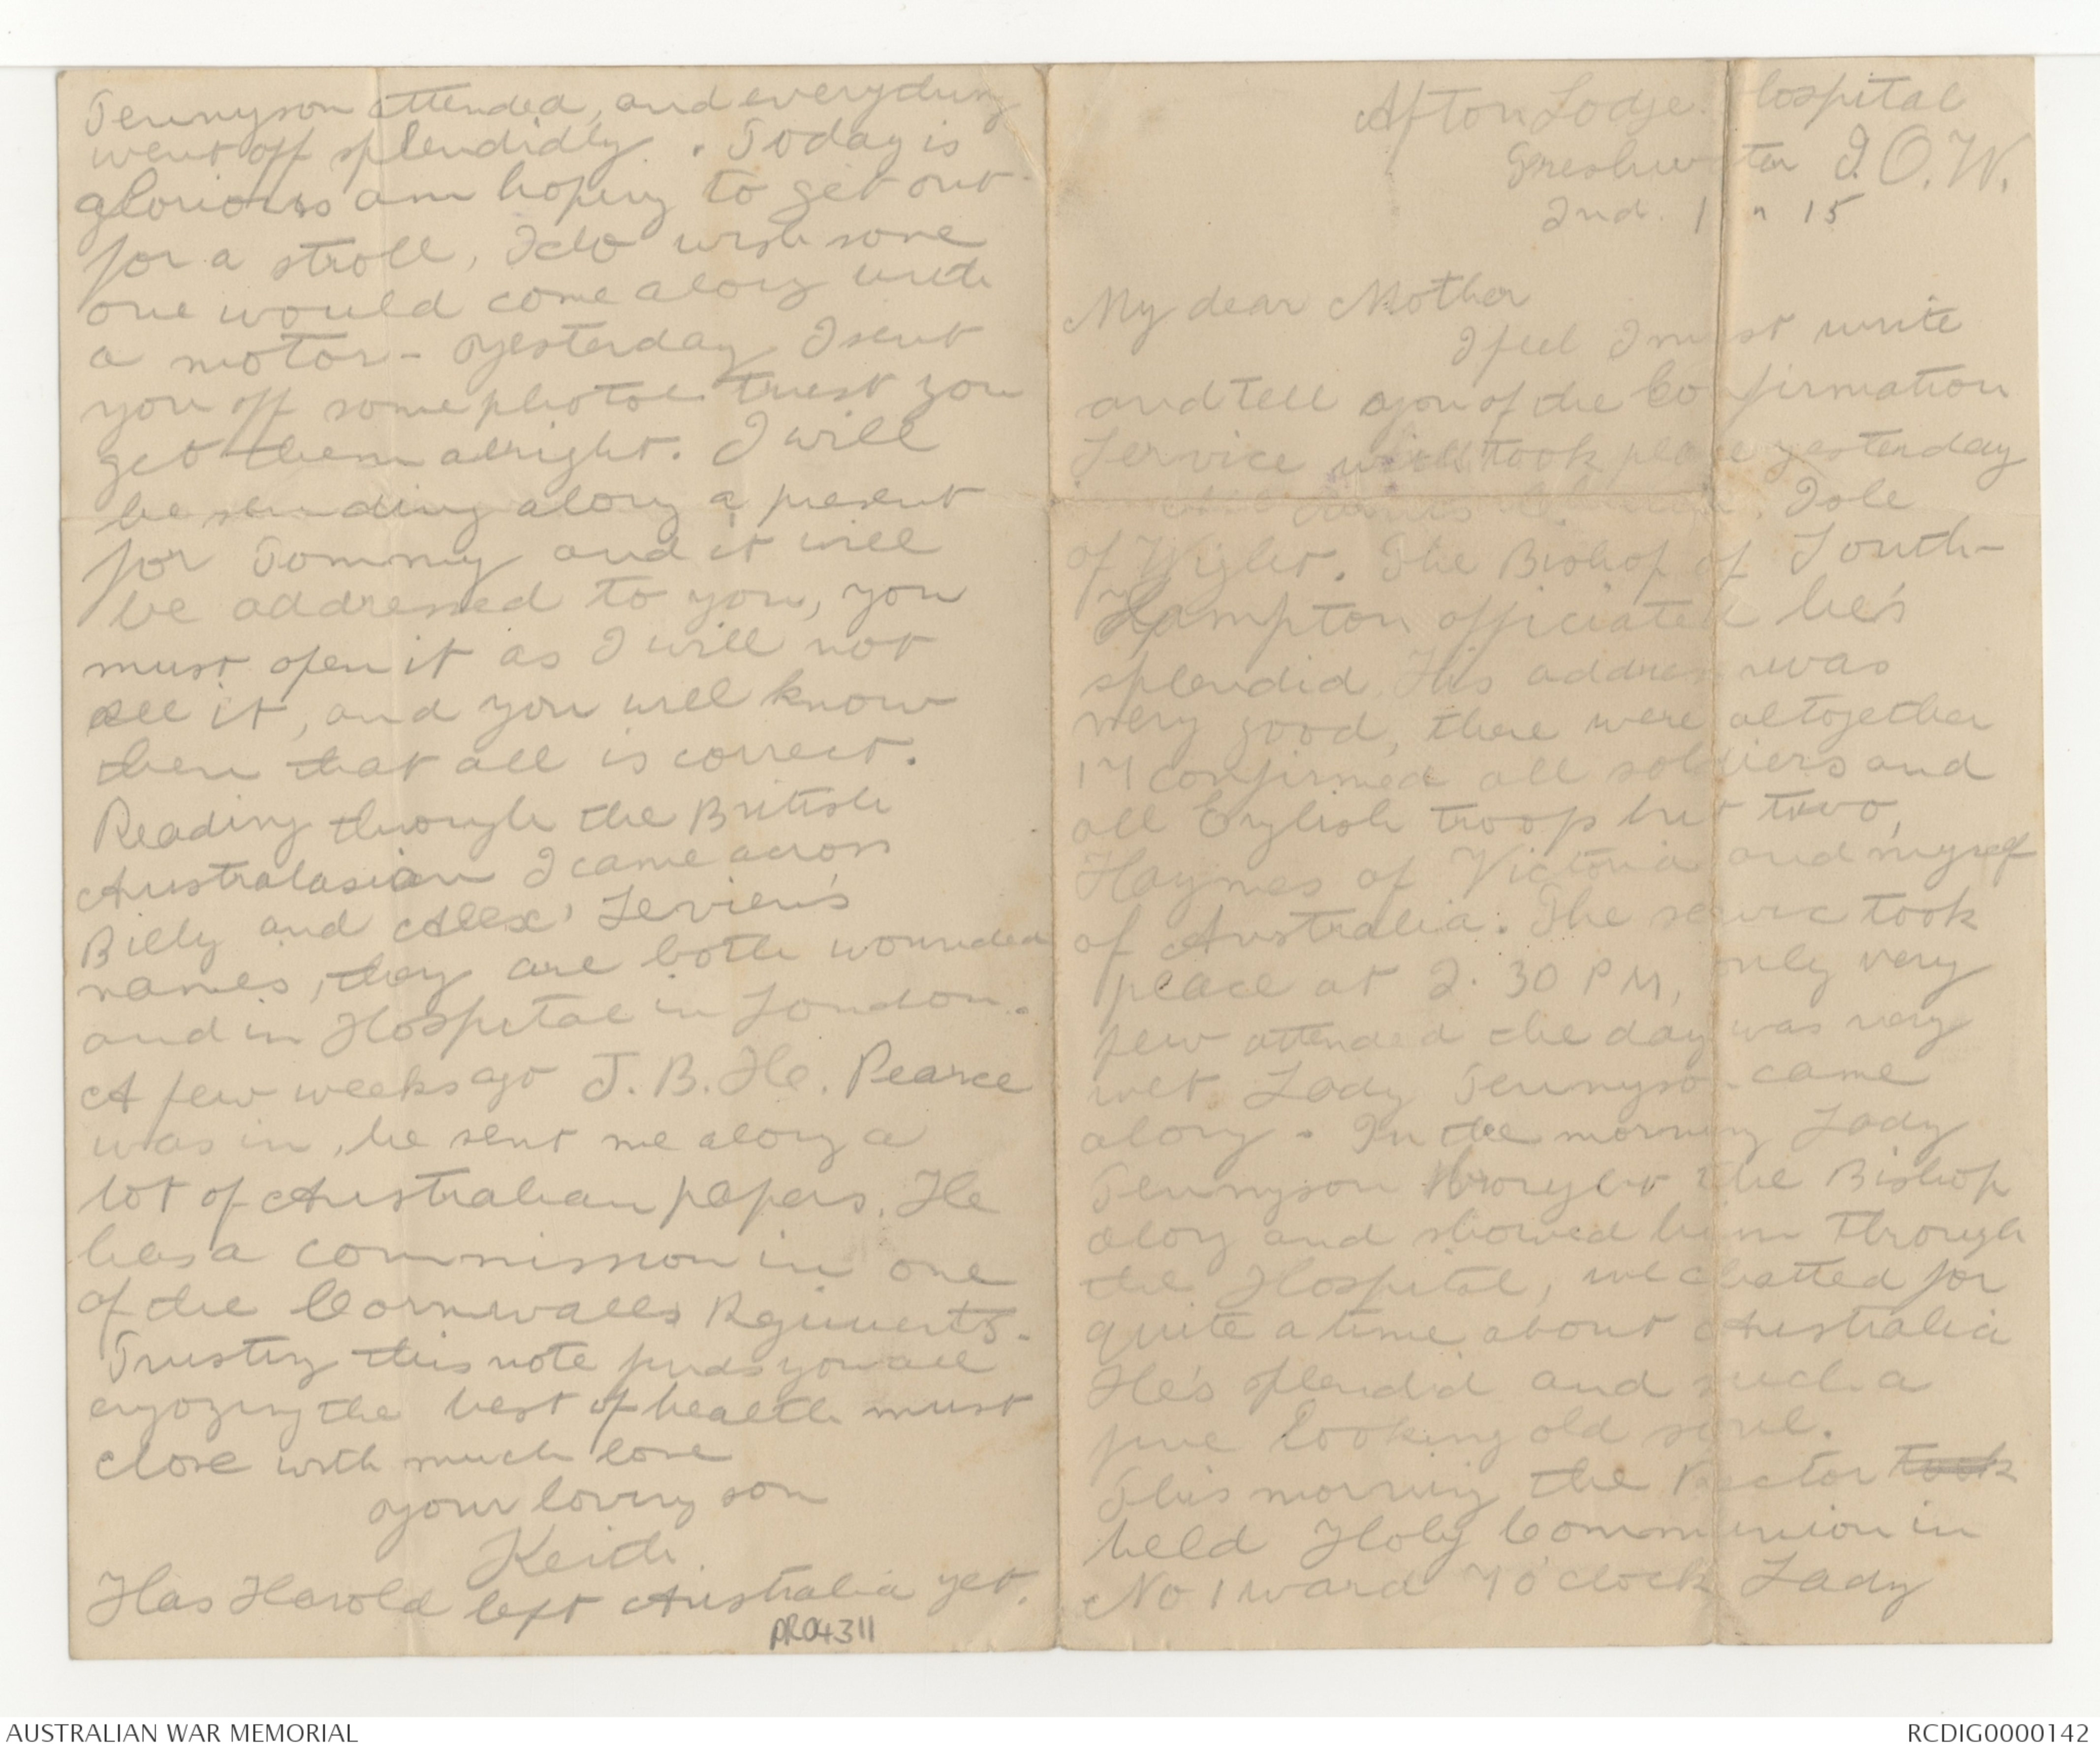 Afton Lodge Hospital
Freshwater I.O.W.
2nd. 1 " 15
My dear Mother
I feel I must write
and tell you of the Confirmation
Service which took place yesterday
Isle
of Wight. The Bishop of South-
Hampton officiated he's
splendid. His address was
very good, there were altogether
17 confirmed all soldiers and
all English troop but two,
Haymes of Victoria and myself
of Australia. The service took
place at 2.30 PM, only very
few attended the day was very
wet Lady Tennyson came
along - In the morning Lady
Tennyson brought the Bishop
along and showed him through
the Hospital, we chatted for
quite a time about Australia
He's splendid and such a
fine looking old soul.
This morning the Rector took
held Holy Communion in
No 1 ward 7 o'clock Lady
Tennyson attended, and everything
went off splendidly. Today is
glorious am hoping to get out
for a stroll, I do wish some
one would come along with
a motor - yesterday I sent
you off some photos trust you
get them alright. I will
be sending along a present
for Tommy and it will
be addressed to you, you
must open it as I will not
see it, and you will know
then that all is correct.
Reading through the British
Australasian I came across
Billy and Alex' Levien's
names, they are both wounded
and in Hospital in London.
A few weeks ago J.B.H. Pearce
was in, he sent me along a
lot of Australian papers. He
has a commission in one
of the Cornwalls Regiments.
Trusting this note finds you all
enjoying the best of health must
close with much love
your loving son
Keith.
Has Harold left Australia yet.
PR04311
AUSTRALIAN WAR MEMORIAL
RCDIG0000142